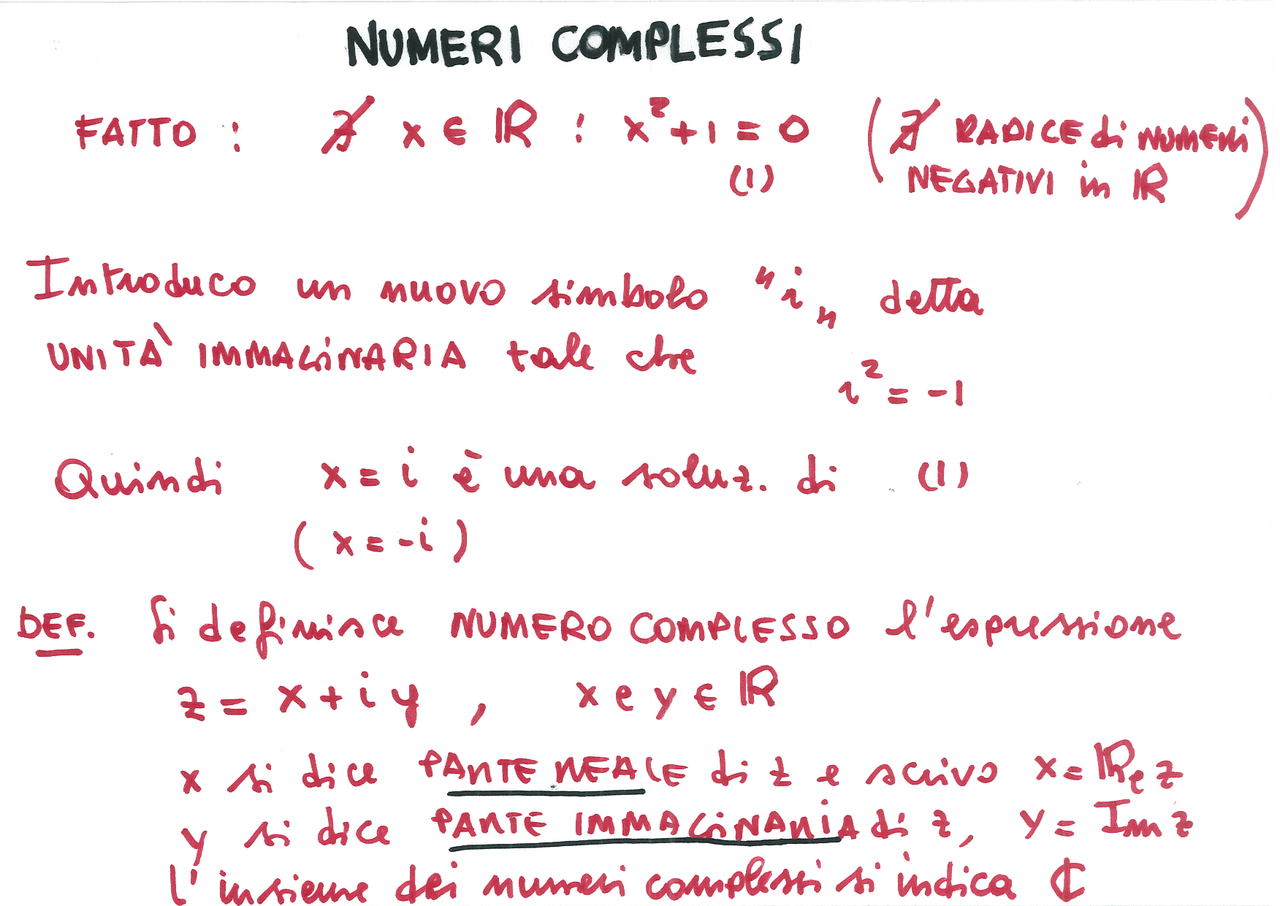 NUMERI COMPLESSI
FATTO : ∄ x ∈ ℝ : x²+1=0 (∄ RADICE di NUMERI
(1) NEGATIVI in ℝ)
Introduco un nuovo simbolo "i" detta
UNITÀ IMMAGINARIA tale che
i² = -1
Quindi x = i è una soluz. di (1)
(x = -i)
DEF. Si definisce NUMERO COMPLESSO l'espressione
z = x + i y , x e y ∈ ℝ
x si dice PARTE REALE di z e scrivo x = ℝe z
y si dice PARTE IMMAGINARIA di z, y = Im z
l'insieme dei numeri complessi si indica ℂ